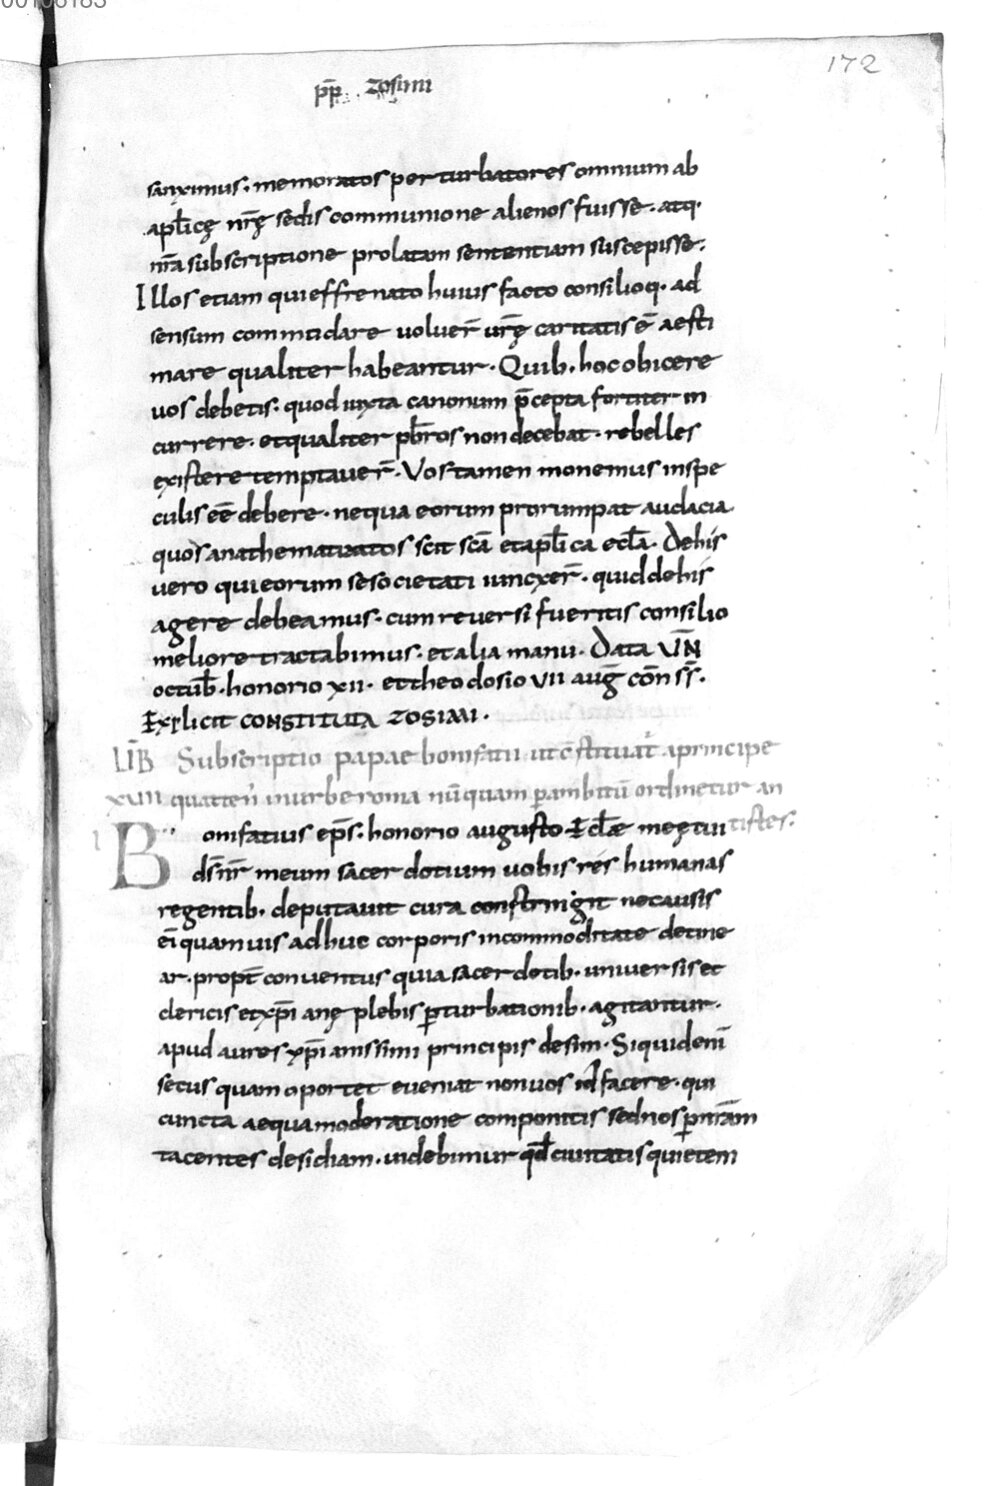 00108183
172
p̄p̄. zosimi
sanximus. memoratos perturbatores omnium ab
apl̄icę nr̄ę sedis communione alienos fuisse. atq.
nr̄a subscriptione prolatam sententiam suscepisse.
Illos etiam qui effrenato huius facto consilioq. ad
sensum commodare uoluer̄ ur̄ę caritatis ē aesti
mare qualiter habeantur. Quib. hoc obicere
uos debetis. quod iuxta canonum p̄cepta fortiter in
currere. et qualiter pb̄ros non decebat. rebelles
existere temptauer̄. Vos tamen monemus inspe
culis eē debere. nequa eorum prorumpat audacia
quos anathematizatos scit sc̄a et apl̄ica ecl̄a. De his
uero qui eorum se societati iuncxer̄. quid de his
agere debeamus. cum reuersi fueritis consilio
meliore tractabimus. et alia manu. Data V N̄
octub̄. honorio xii. et theodosio vii auḡ cōn s̄s̄.
Explicit constituta zosimi.
LIB̄ Subscriptio papae bonifatii ut c̄stituat̄ a principe
xviii quatten̄ in urbe roma nūquam p̄ ambitū ordinetur an
tistes:
Bonifatius ep̄s. honorio augusto Ecl̄æ meę cui
ds̄ nr̄ meum sacerdotium uobis res humanas
regentib. deputauit cura constringit ne causis
ei quamuis adhuc corporis incommoditate detine
ar. propt̄ conuentus quia sacerdotib. uniuersis et
clericis et xp̄ianę plebis p̄turbationib. agitantur.
apud aures xp̄ianissimi principis desim. Si quidem̄
secus quam oportet eueniat non uos id facere. qui
cuncta aequa moderatione componitis sed nos p̄ nr̄am
tacentes desidiam. uidebimur qd̄ ciuitatis quietem